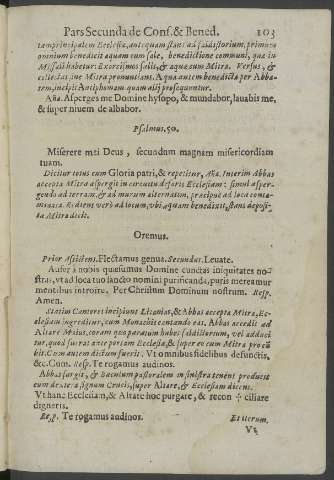 Pars Secunda de Conf. & Bened. 103
tam principalem Ecclesiæ, antequam stans ad faldistorium, primum
omnium benedicit aquam cum sale, benedictione communi, quæ in
Missali habetur: Exorcismos salis, & aquæ sum Mitra. Versus, &
collectas sine Mitra pronuntians. Aqua autem benedicta per Abba-
tem, incipit Antiphonam quam alij prosequuntur.
Aña. Asperges me Domine hysopo, & mundabor, lauabis me,
& super niuem de albabor.
Psalmus. 50.
Miserere mei Deus, secundum magnam misericordiam
tuam.
Dicitur totus cum Gloria patri, & repetitur, Aña. Interim Abbas
accepta Mitra aspergit in circuitu deforis Ecclesiam: simul asper-
gendo ad terram, & ad murum alternatim, præcipuè ad loca conta-
minata. Rediens verò ad locum, vbi aquam benedixit, stans deposi-
ta Mitra dicit.
Oremus.
Prior Assistens. Flectamus genua. Secundus. Leuate.
Aufer à nobis quæsumus Domine cunctas iniquitates no-
stras, vt ad loca tuo sancto nomini purificanda, puris mereamur
mentibus introire. Per Christum Dominum nostrum. Resp.
Amen.
Statim Cantores incipiunt Litanias, & Abbas accepta Mitra, Ec-
clesiam ingreditur, cum Monachis cantando eas. Abbas accedit ad
Altare Maius, coram quo paratum habet faldistorium, vel adduci
tur, quod fuerat ante portam Ecclesiæ, & super eo cum Mitra procũ
bit. Cum autem dictum fuerit. Vt omnibus fidelibus defunctis,
&c. Cum. Resp. Te rogamus audinos.
Abbas surgit, & Baculum pastoralem in sinistra tenens producit
cum dextera signum Crucis, super Altare, & Ecclesiam dicens.
Vt hanc Ecclesiam, & Altare hoc purgare, & recon ✢ ciliare
digneris.
Resp. Te rogamus audinos. Et iterum.
Vt